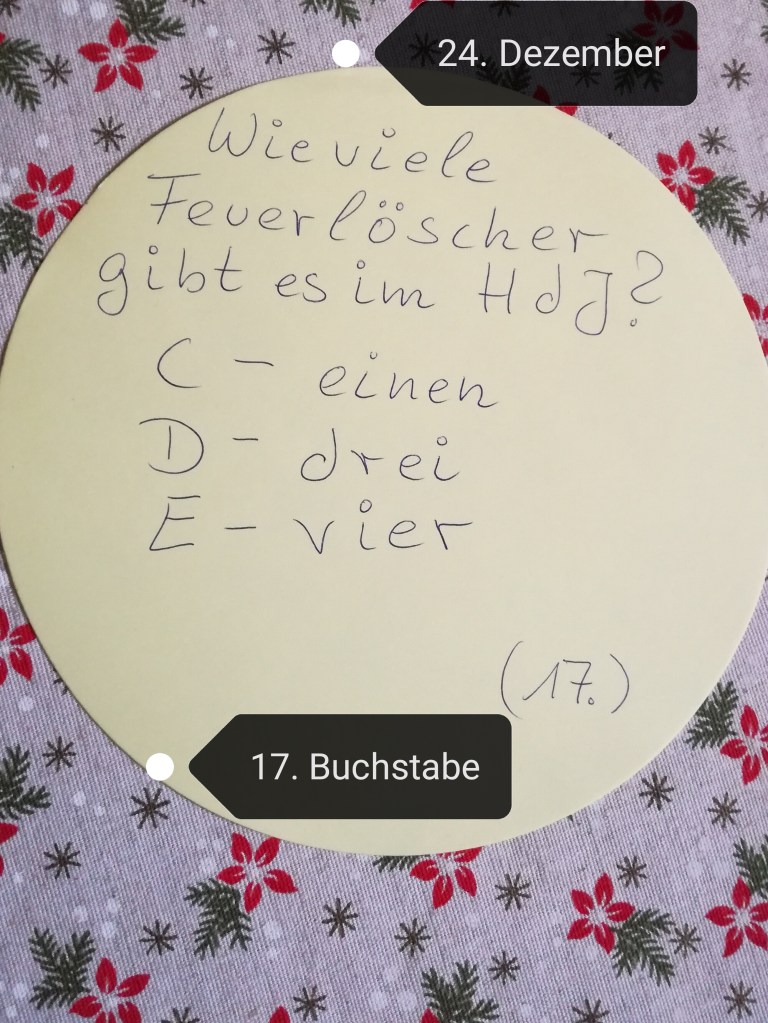 24. Dezember
Wie viele
Feuerlöscher
gibt es im HdJ?
C - einen
D - drei
E - vier
(17.)
17. Buchstabe